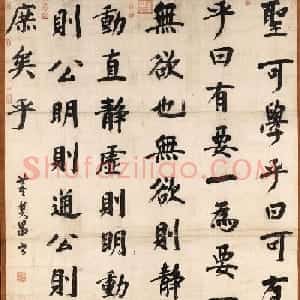 聖可學乎曰可有
乎曰有要一為要
無欲也無欲則靜
動直靜虛則明動
則公明則通公則
庶矣乎
董其昌書
Shufaziliao.com